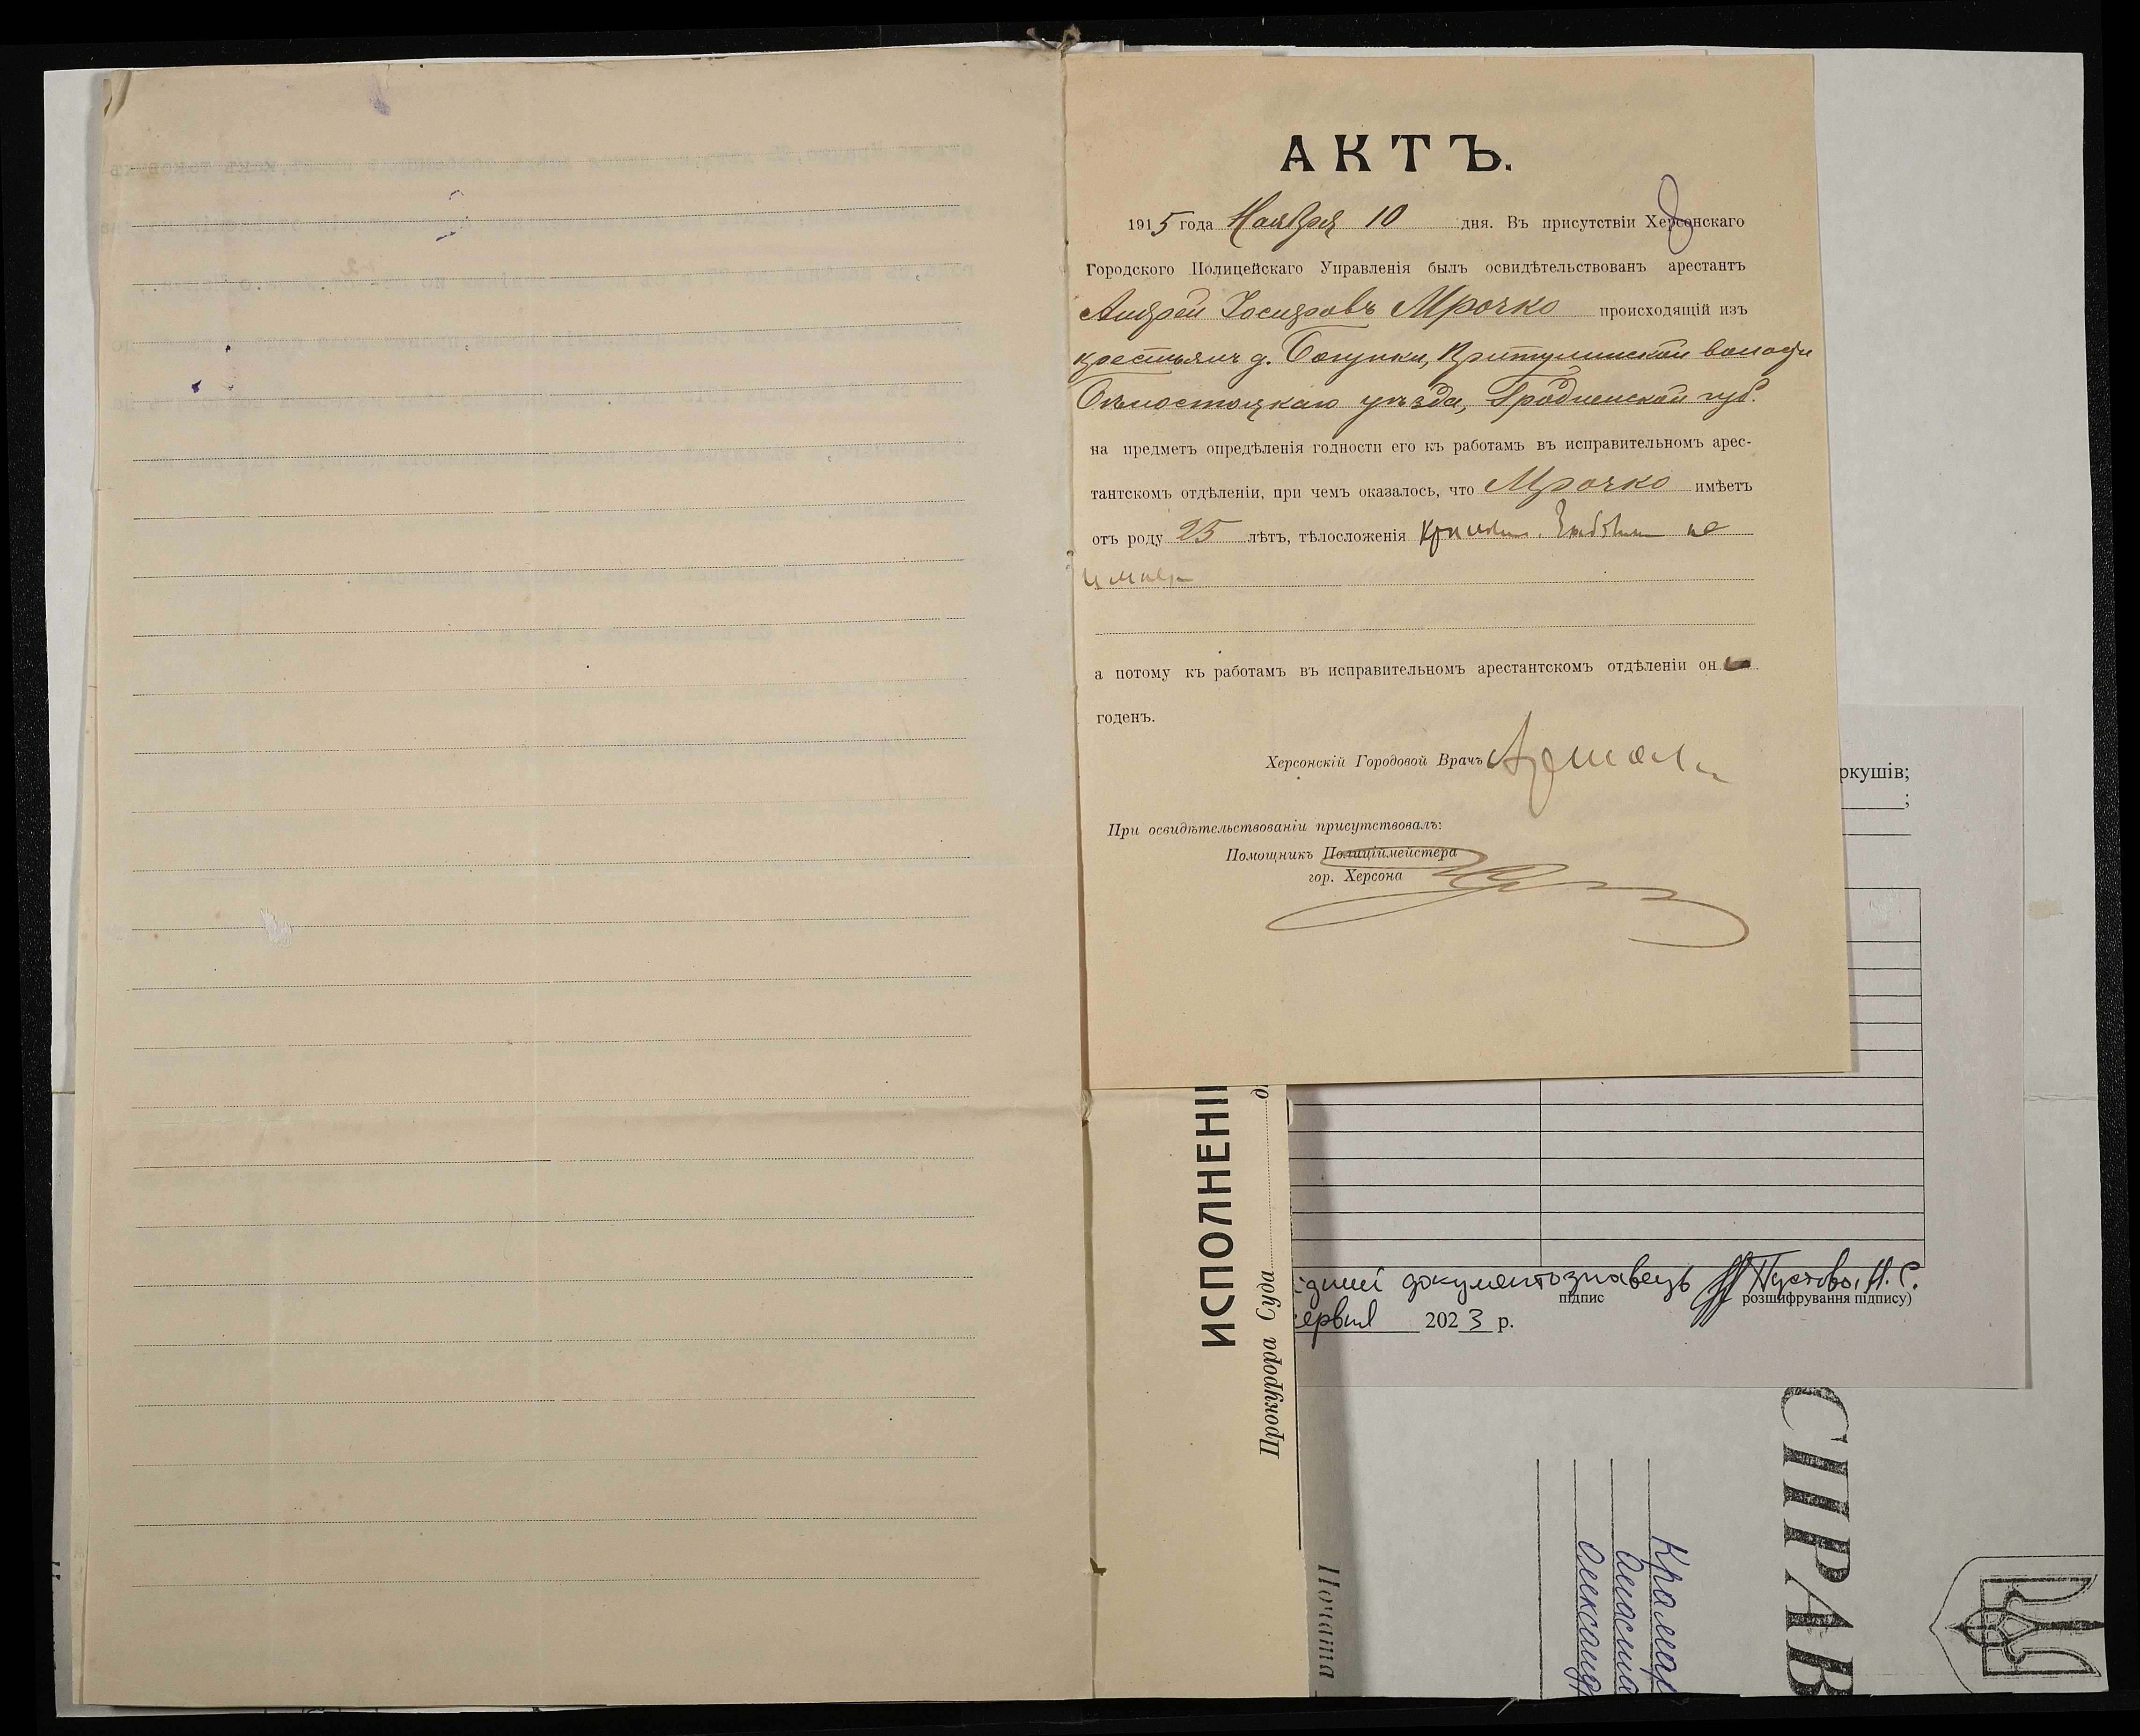 АКТЪ.
1915 года Ноября 10 дня. Въ присутствіи Херсонскаго
Городского Полицейскаго Управленія былъ освидѣтельствованъ арестантъ
Андрей Іосифовъ Мрочко происходящій изъ
крестьянъ д. Богушки, Критулинской волости
Бѣлостоцкаго уѣзда, Гродненской губ.
на предметъ опредѣленія годности его къ работамъ въ исправительномъ арес-
тантскомъ отдѣленіи, при чемъ оказалось, что Мрочко имѣетъ
отъ роду 25 лѣтъ, тѣлосложенія не
имѣетъ
а потому къ работамъ въ исправительномъ арестантскомъ отдѣленіи он
годенъ.
Херсонскій Городовой Врачъ
При освидѣтельствованіи присутствовалъ:
Помощникъ Полиціймейстера
гор. Херсона
ркушів;
;
документознавець Пустова Н. С.
підпис розшифрування підпису)
ервня 2023 р.
ИСПОЛНЕНІ
Прокурора Суда
Почата
СПРАВ
Крамар
Анаста
Олександ